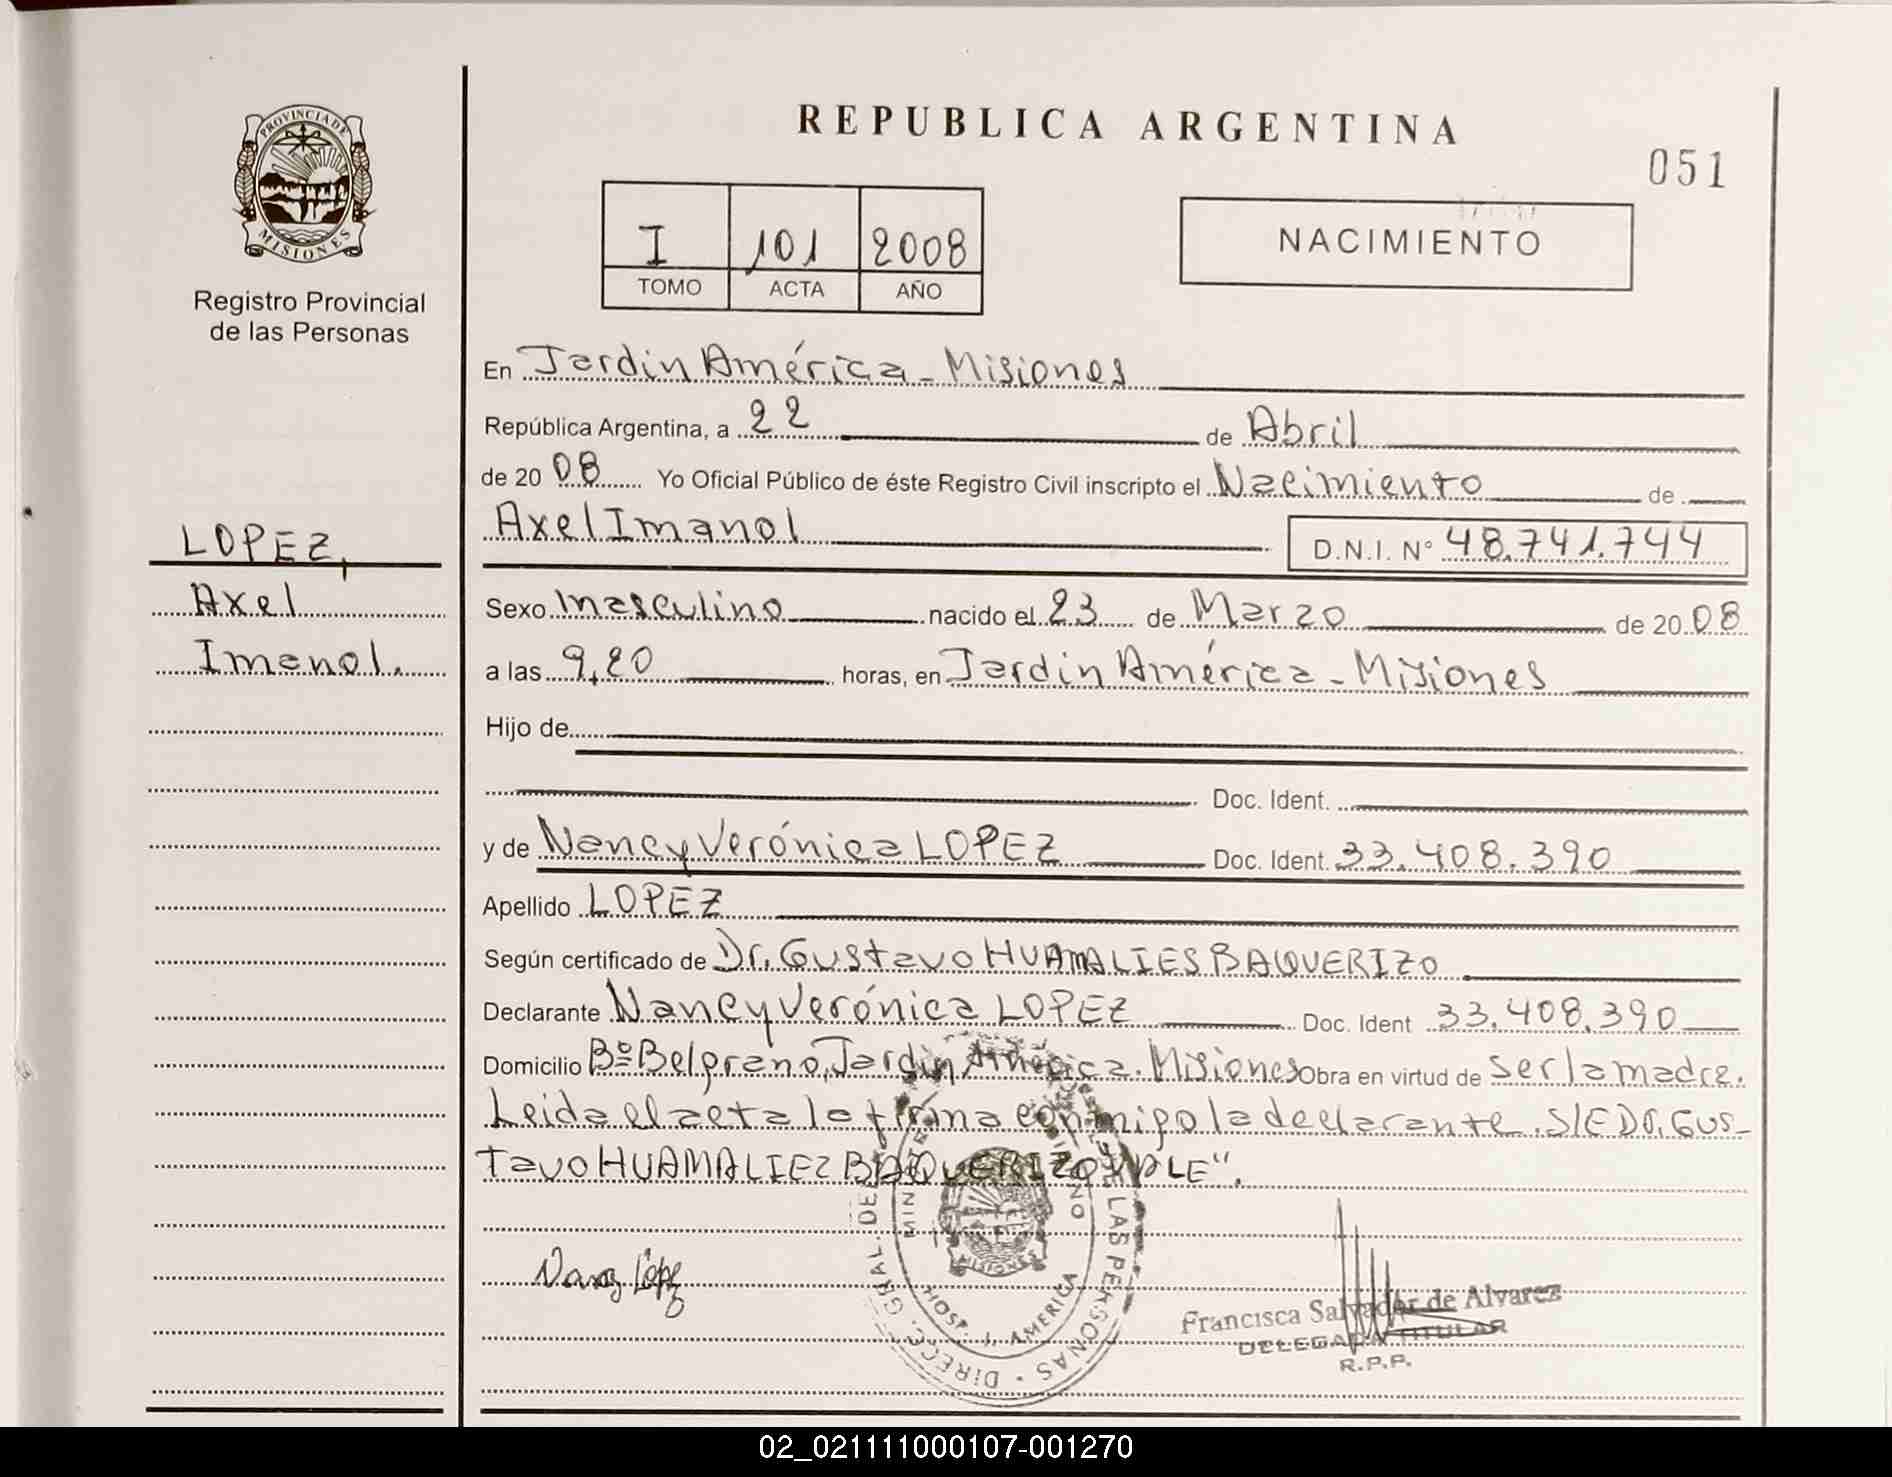 REPUBLICA ARGENTINA
051
PROVINCIA DE
MISIONES
Registro Provincial
de las Personas
I 101 2008
TOMO ACTA AÑO
NACIMIENTO
En Jardin América - Misiones
República Argentina, a 22 de Abril
de 20 08 Yo Oficial Público de éste Registro Civil inscripto el Nacimiento de
Axel Imanol D.N.I. N° 48.741.744
LOPEZ,
Axel
Imanol.
Sexo masculino nacido el 23 de Marzo de 20 08
a las 9,20 horas, en Jardin América - Misiones
Hijo de
Doc. Ident.
y de Nancy Verónica LOPEZ Doc. Ident. 33.408.390
Apellido LOPEZ
Según certificado de Dr. Gustavo HUAMALIES BAQUERIZO
Declarante Nancy Verónica LOPEZ Doc. Ident 33.408.390
Domicilio Bº Belgrano, Jardin América. Misiones Obra en virtud de ser la madre.
Leida el acta la firma conmigo la declarante. S/E Dr. Gus-
tavo HUAMALIEZ BAQUERIZO VALE".
Nancy López
DIRECC. GRAL. DE LAS PERSONAS
HOSP. J. AMERICA
MISIONES
Francisca Salvador de Alvarez
DELEGADA TITULAR
R.P.P.
02_021111000107-001270